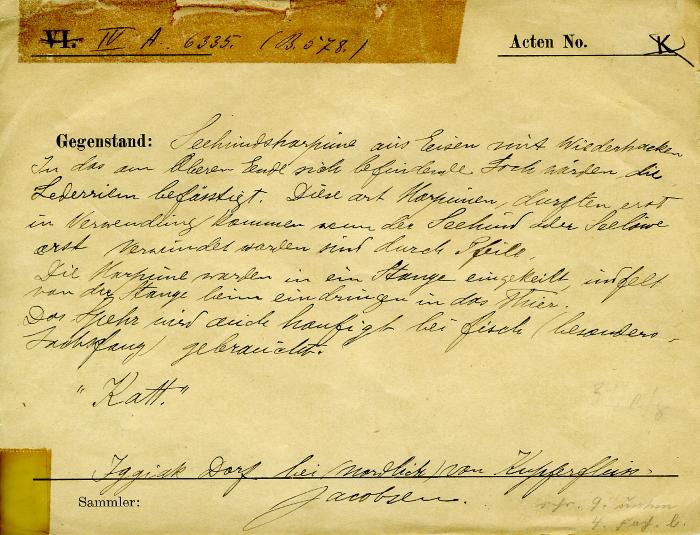 VI. IV A. 6335. (B. 578.)
Acten No. K
Gegenstand: Seehundsharpune aus Eisen mit Wiederhacken
In das am Oberen Ende sich befindende Loch wärden die
Lederriem befässtigt. Diese art Harpunen, durften erst
in Verwendung kommen wenn der Seehund oder Seelöwe
erst verwundet warden sind durch Pfeile.
Die Harpune warden in ein Stange eingekeilt, und felt
von der Stange beim eindringen in das Thier.
Das Spehr wird auch haufigt bei fisch (besonders
Lachsfang) gebraucht.
"Katt."
Iggiak Dorf bei (nordlich) von
Sammler: Jacobsen.